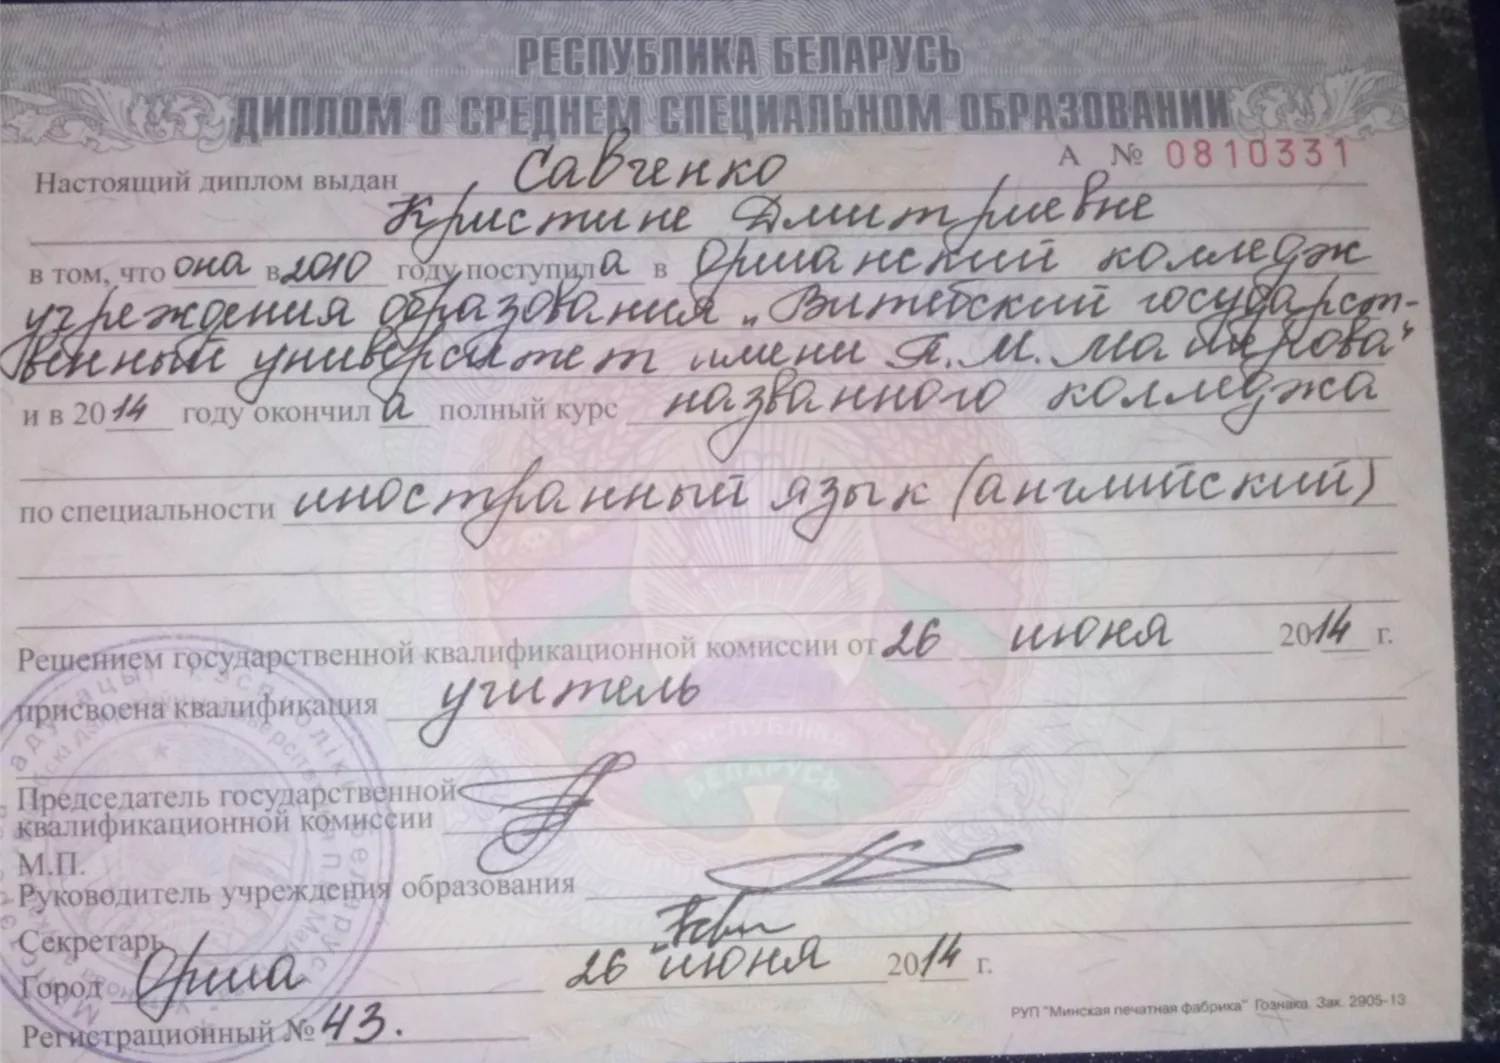 РЕСПУБЛИКА БЕЛАРУСЬ
ДИПЛОМ О СРЕДНЕМ СПЕЦИАЛЬНОМ ОБРАЗОВАНИИ
А № 0810331
Настоящий диплом выдан Савченко
Кристине Дмитриевне
в том, что она в 2010 году поступила в Оршанский колледж
учреждения образования „Витебский государст-
венный университет имени П.М. Машерова“
и в 2014 году окончила полный курс названного колледжа
по специальности иностранный язык (английский)
Решением государственной квалификационной комиссии от 26 июня 2014 г.
присвоена квалификация учитель
РЭСПУБЛІКА
БЕЛАРУСЬ
Председатель государственной
квалификационной комиссии
М.П.
Руководитель учреждения образования
Секретарь
Город Орша 26 июня 2014 г.
Регистрационный № 43.
РУП "Минская печатная фабрика" Гознака. Зак. 2905-13